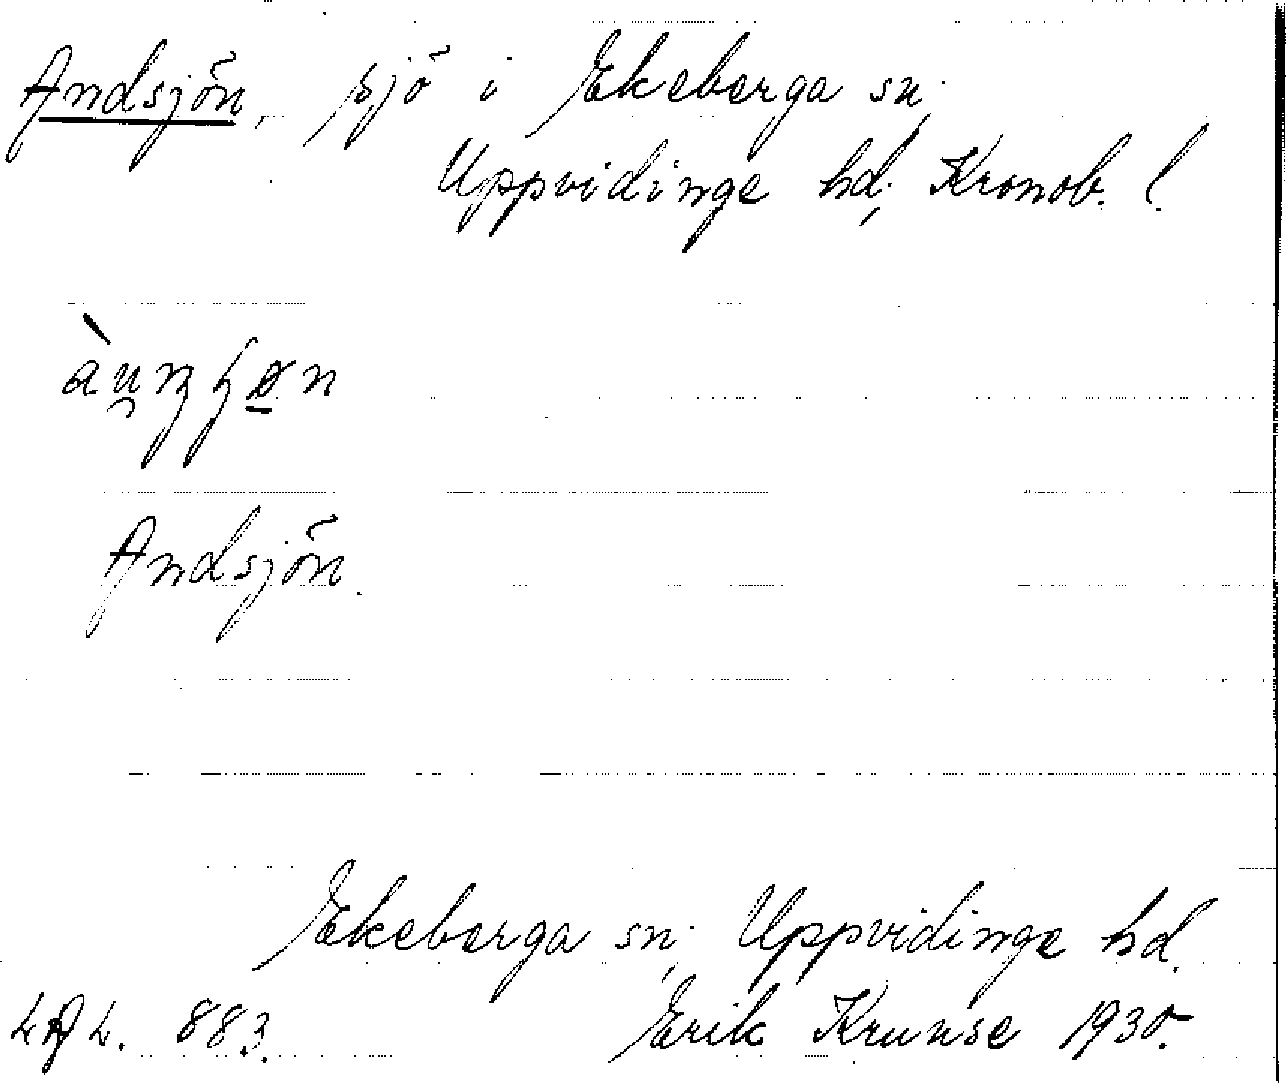 Andsjön, sjö i Ekeberga sn,
Uppvidinge hd, Kronob. l.
Andsjön.
Ekeberga sn, Uppvidinge hd.
LAL. 883. Erik Krunse 1935.